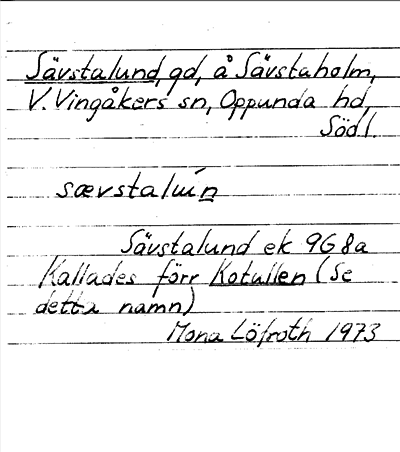 Sävstalund, gd, å Sävstaholm,
V. Vingåkers sn, Oppunda hd,
Södl.
Sävstalund ek 9G8a
Kallades förr Kotullen (Se
detta namn)
Mona Löfroth 1973